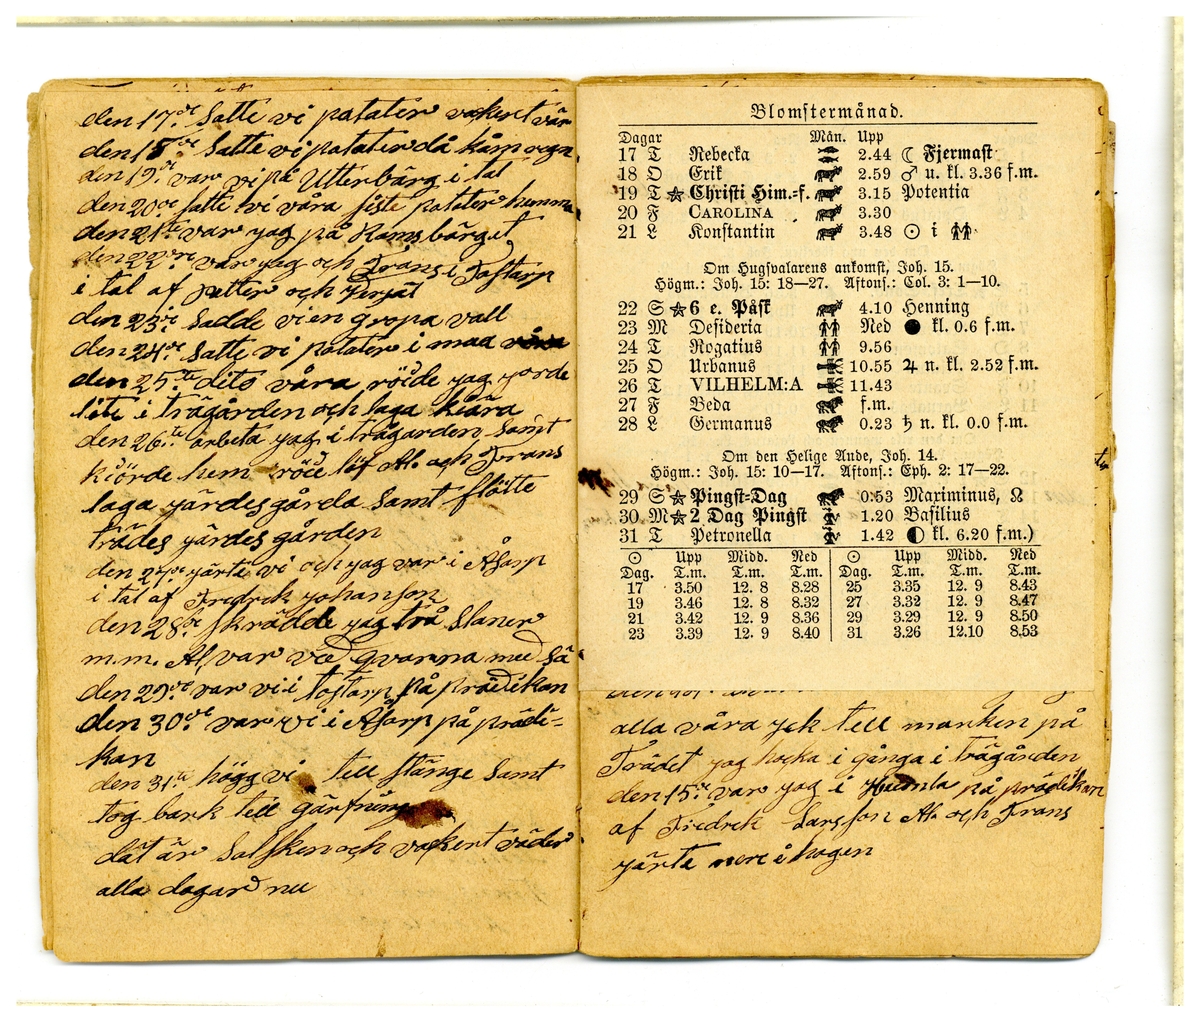 den 17de Satte vi patater vakert vär
den 18de Satte vi patater då kåm regn
den 19de var vi på Utterbärg i tal
den 20de satte vi våra siste patater hemma
den 21ste var jag på Ramsbärget
den 22dre var jag och Frans i Tostarp
i tal af Petter och
den 23de Sadde vi en gropa vall
den 24de Satte vi patater i maa
den 25te dito våra röide jag jorde
lite i trägården och laga kiära
den 26te arbeta jag i trägarden samt
kiörde hem röie löf Al. och Frans
laga gärdesgårda samt flötte
trädes gärdes gården
den 27de gärta vi och jag var i Åsarp
i tal af Fredrek Johanson
den 28de skrädde jag trå Slaner
m.m. Al, var ved qvarna med Sä
den 29de var vi i tostarp på prädikan
den 30de var vi i Åsarp på prädi=
kan
den 31te högg vi till stänge samt
tog bark till gärfning
dät är Solsken och vackert väder
alla dagar nu
Blomstermånad.
Dagar Mån. Upp
17 T Rebecka 2.44 ☾ Fjermast
18 O Erik 2.59 ♂ u. kl. 3.36 f.m.
19 T ☆ Christi Him.=f. 3.15 Potentia
20 F CAROLINA 3.30
21 L Konstantin 3.48 ☉ i ♊
Om Hugsvalarens ankomst, Joh. 15.
Högm.: Joh. 15: 18—27. Aftons.: Col. 3: 1—10.
22 S ☆ 6 e. Påsk 4.10 Henning
23 M Desideria Ned ● kl. 0.6 f.m.
24 T Rogatius 9.56
25 O Urbanus 10.55 ♃ n. kl. 2.52 f.m.
26 T VILHELM:A 11.43
27 F Beda f.m.
28 L Germanus 0.23 ♄ n. kl. 0.0 f.m.
Om den Helige Ande, Joh. 14.
Högm.: Joh. 15: 10—17. Aftons.: Eph. 2: 17—22.
29 S ☆ Pingst=Dag 0:53 Maximinus, ☊
30 M ☆ 2 Dag Pingst 1.20 Basilius
31 T Petronella 1.42 ◐ kl. 6.20 f.m.)
☉ Upp Midd. Ned ☉ Upp Midd. Ned
Dag. T.m. T.m. T.m. Dag. T.m. T.m. T.m.
17 3.50 12. 8 8.28 25 3.35 12. 9 8.43
19 3.46 12. 8 8.32 27 3.32 12. 9 8.47
21 3.42 12. 9 8.36 29 3.29 12. 9 8.50
23 3.39 12. 9 8.40 31 3.26 12.10 8.53
alla våra gek till manken på
Trädet jag hacka i gånga i trägården
den 15de var jag i Humla på prädikan
af Fredrek Larsson Al. och Frans
gärta nere i hagen